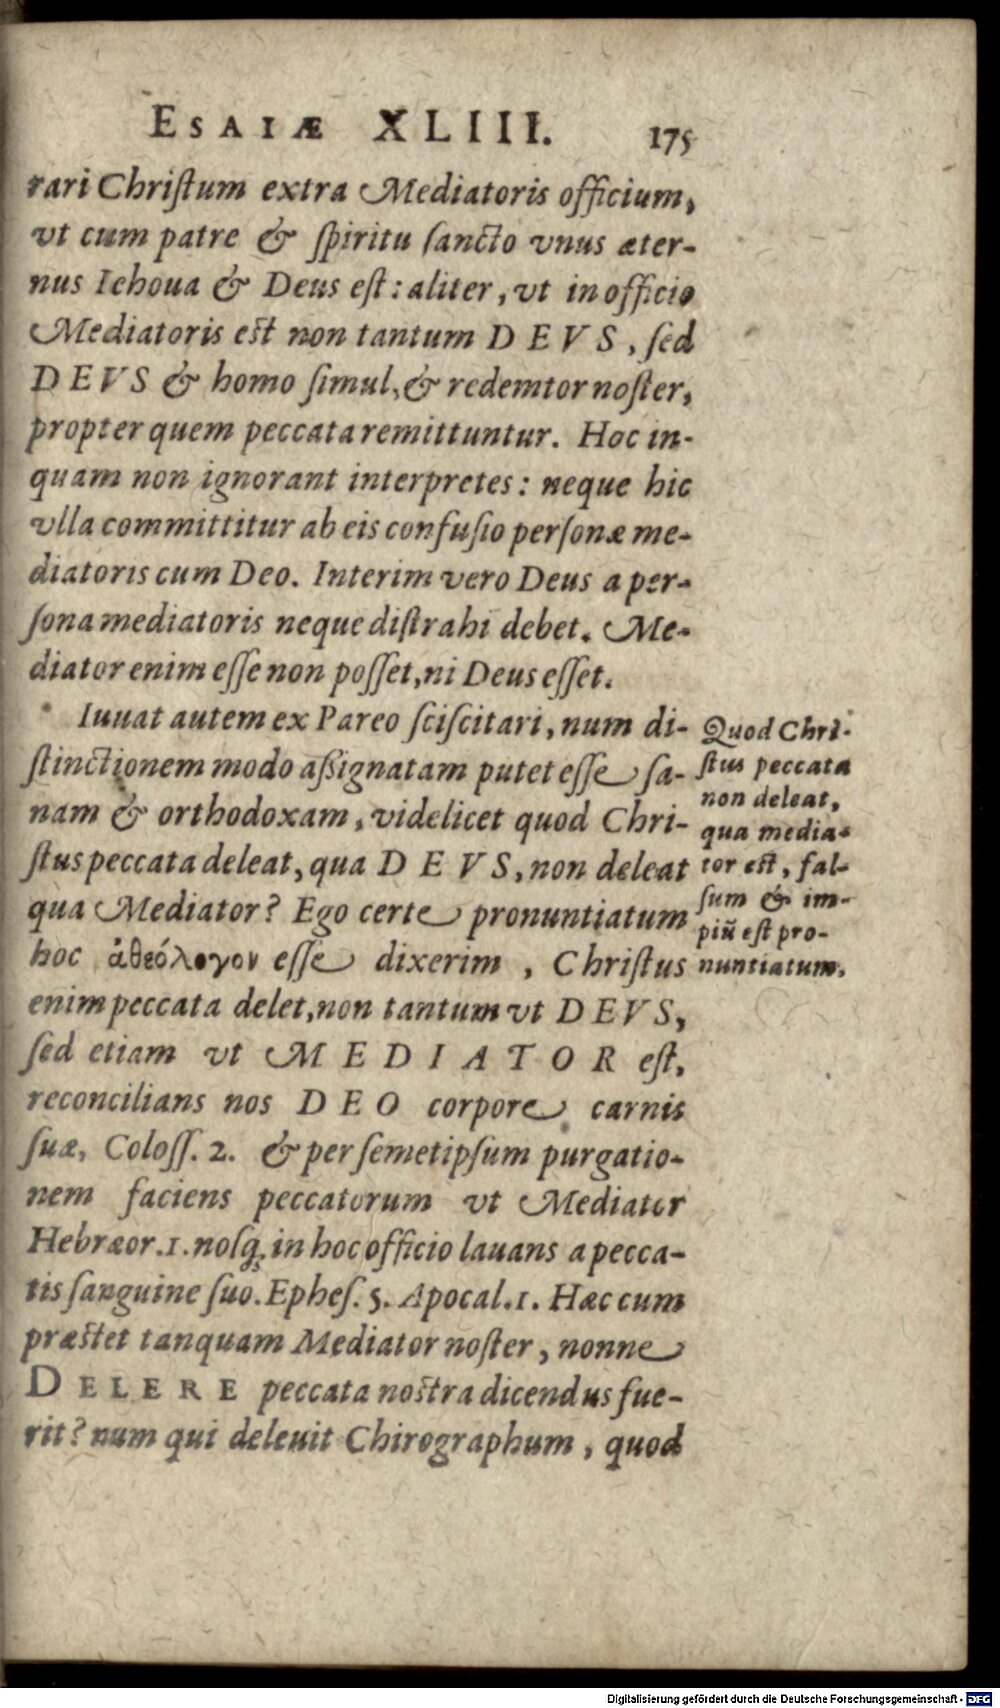 ESAIÆ XLIII. 175
rari Christum extra Mediatoris officium,
vt cum patre & spiritu sancto vnus æter-
nus Iehoua & Deus est: aliter, vt in officio
Mediatoris est non tantum DEVS, sed
DEVS & homo simul, & redemtor noster,
propter quem peccata remittuntur. Hoc in-
quam non ignorant interpretes: neque hic
vlla committitur ab eis confusio personæ me-
diatoris cum Deo. Interim vero Deus a per-
sona mediatoris neque distrahi debet. Me-
diator enim esse non posset, ni Deus esset.
Iuuat autem ex Pareo sciscitari, num di-
stinctionem modo aßignatam putet esse sa-
nam & orthodoxam, videlicet quod Chri-
stus peccata deleat, qua DEVS, non deleat
qua Mediator? Ego certe pronuntiatum
hoc ἀθεόλογον esse dixerim, Christus
enim peccata delet, non tantum vt DEVS,
sed etiam vt MEDIATOR est,
reconcilians nos DEO corpore carnis
suæ, Coloss. 2. & per semetipsum purgatio-
nem faciens peccatorum vt Mediator
Hebræor. 1. nosq; in hoc officio lauans a pecca-
tis sanguine suo. Ephes. 5. Apocal. 1. Hæc cum
præstet tanquam Mediator noster, nonne
DELERE peccata nostra dicendus fue-
rit? num qui deleuit Chirographum, quod
Quod Chri-
stus peccata
non deleat,
qua media-
tor est, fal-
sum & im-
piũ est pro-
nuntiatum.
Digitalisierung gefördert durch die Deutsche Forschungsgemeinschaft - DFG